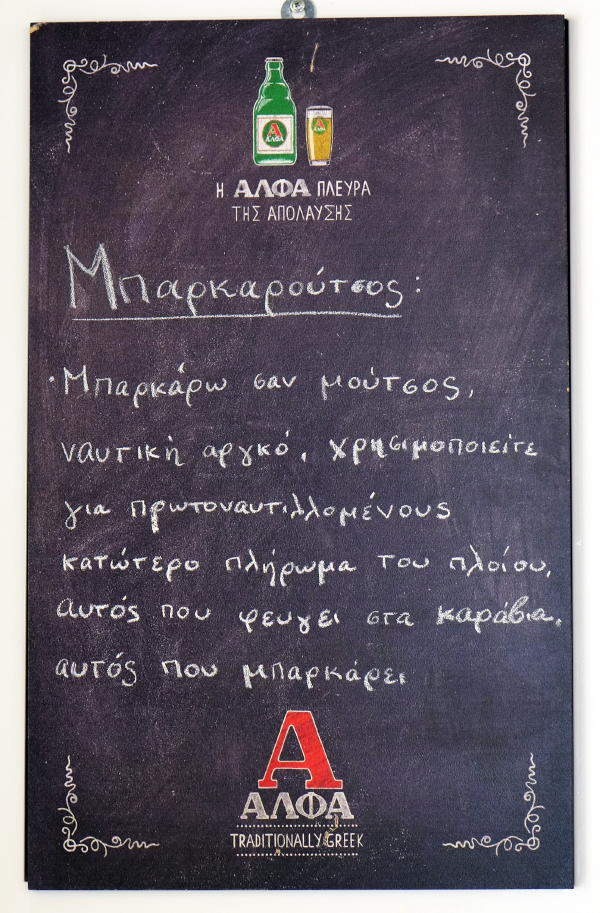 Α
ΑΛΦΑ
Α
ΑΛΦΑ
Η ΑΛΦΑ ΠΛΕΥΡΑ
ΤΗΣ ΑΠΟΛΑΥΣΗΣ
Μπαρκαρούτσος:
·Μπαρκάρω σαν μούτσος,
ναυτική αργκό, χρησιμοποιείτε
για πρωτοναυτιλλομένους
κατώτερο πλήρωμα του πλοίου,
αυτός που φευγει στα καράβια,
αυτός που μπαρκάρει
Α
ΑΛΦΑ
TRADITIONALLY GREEK